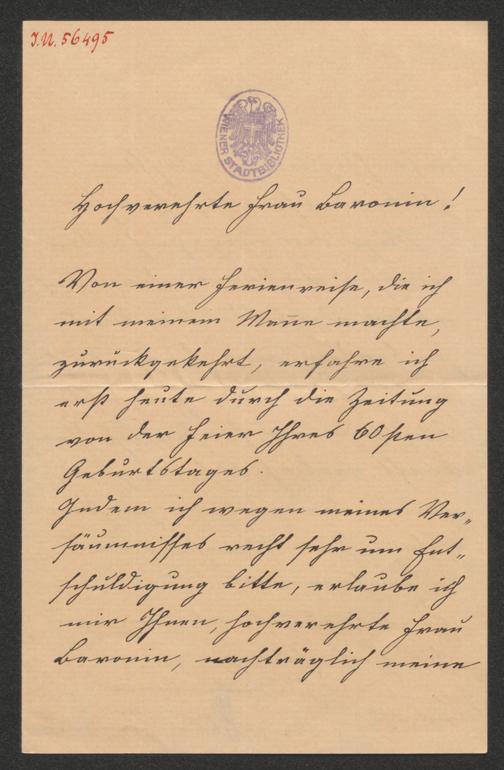 I.N. 56495
WIENER STADTBIBLIOTHEK
Hochverehrte Frau Baronin!
Von einer Ferienreise, die ich
mit meinem Man̄e machte,
zurückgekehrt, erfahre ich
erst heute durch die Zeitung
von der Feier Ihres 60sten
Geburtstages.
Indem ich wegen meines Ver-
säumnisses recht sehr um Ent-
schuldigung bitte, erlaube ich
mir Ihnen, hochverehrte Frau
Baronin, nachträglich meine